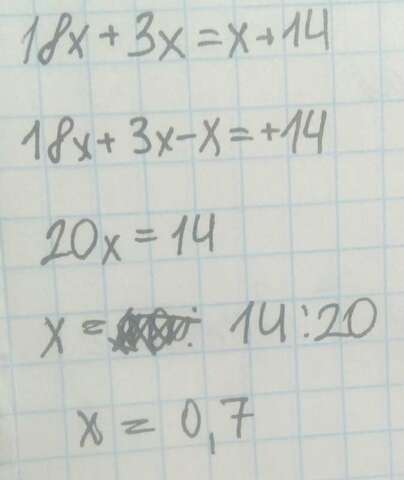 18x + 3x = x + 14
18x + 3x - x = +14
20x = 14
x = 14 : 20
x = 0,7